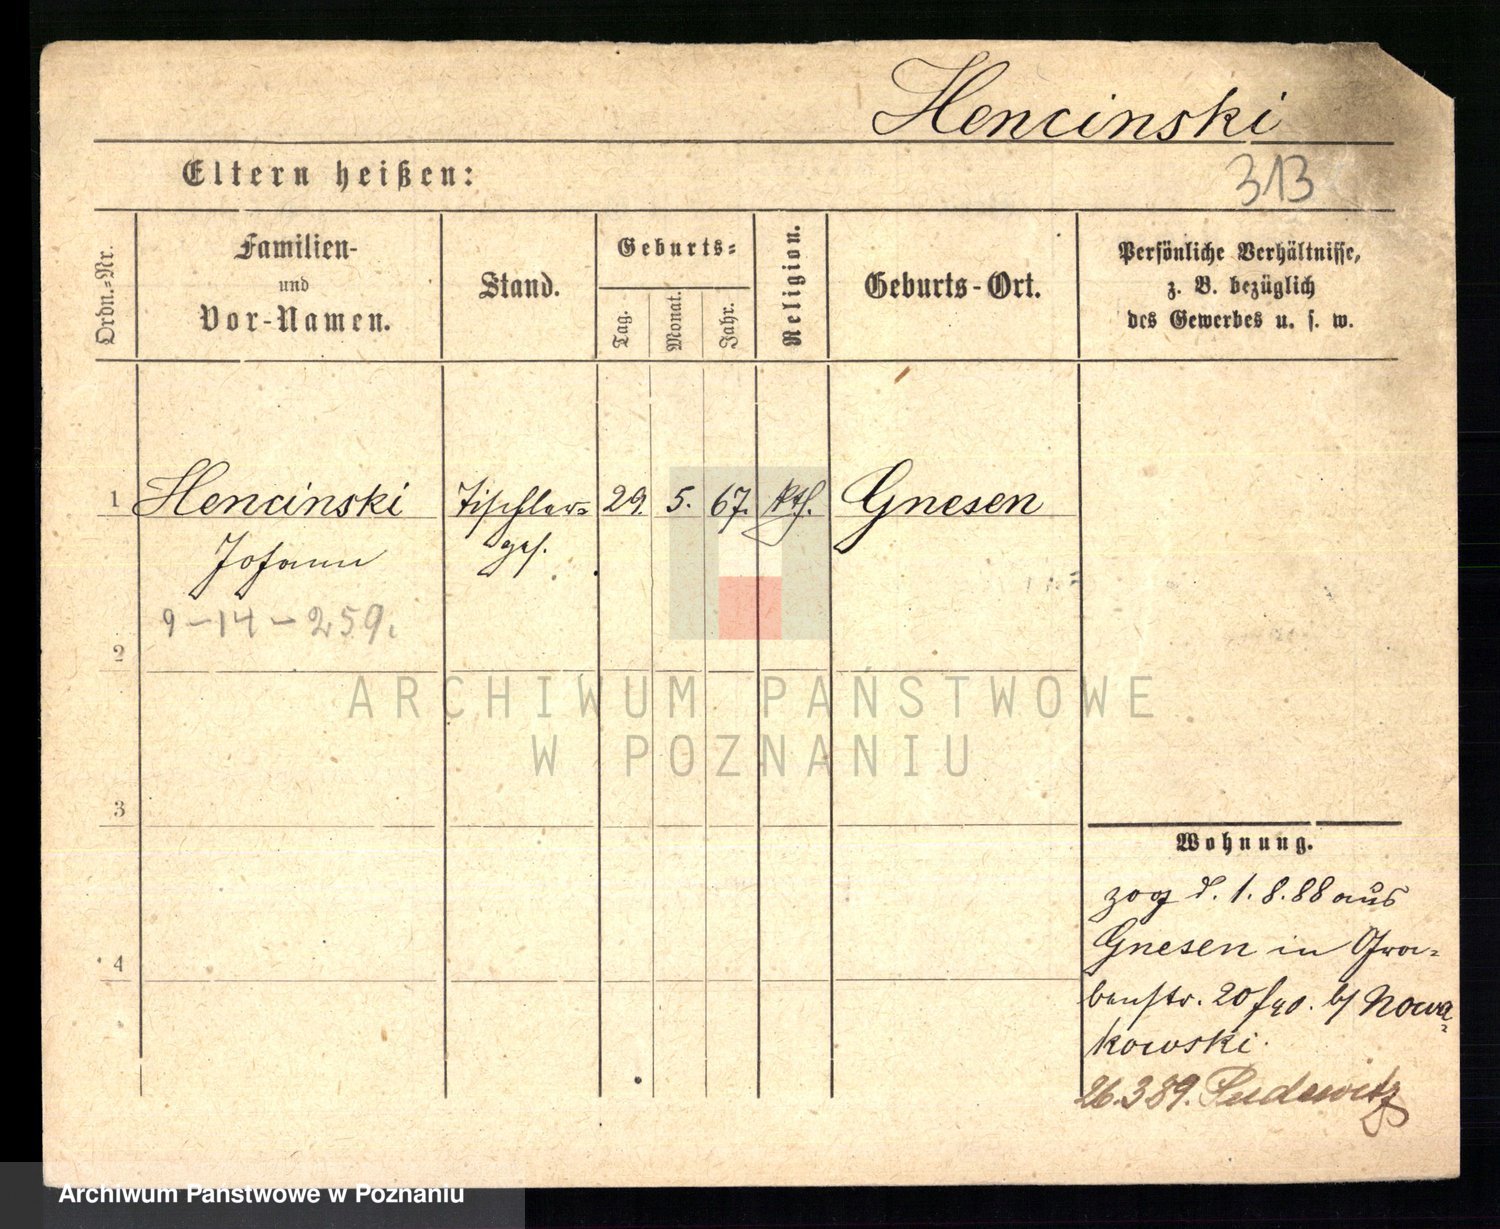 Hencinski
313
Eltern heißen:
Ordn.-Nr.
Familien-
und
Vor-Namen.
Stand.
Geburts-
Tag.
Monat.
Jahr.
Religion.
Geburts-Ort.
Persönliche Verhältnisse,
z. B. bezüglich
des Gewerbes u. s. w.
1 Hencinski Tischler- 29. 5. 67. kth. Gnesen
Johann ges.
9-14-259.
2
ARCHIWUM PAŃSTWOWE
W POZNANIU
3
Wohnung.
zog d. 1.8.88 aus
Gnesen in Gra-
4
benstr. 20 b/ Nowa-
kowski.
26.3.89. Pudewitz
Archiwum Państwowe w Poznaniu